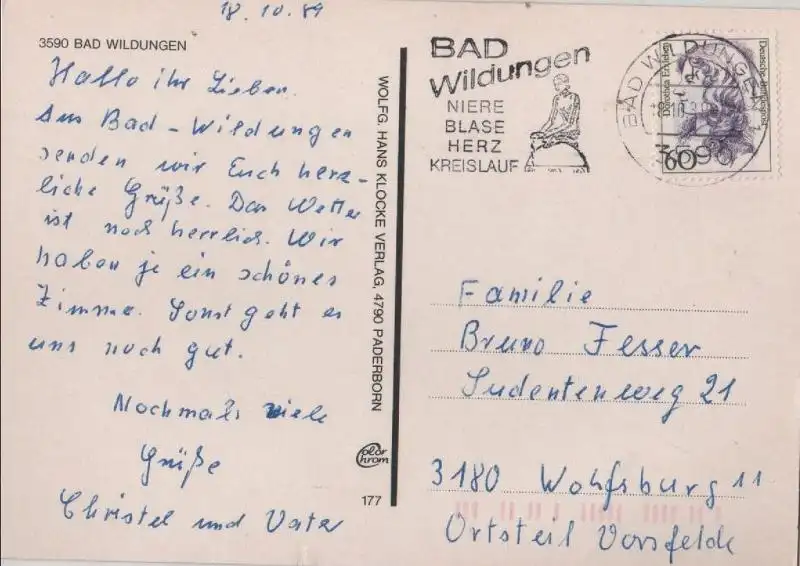 18.10.89
3590 BAD WILDUNGEN
Hallo ihr Lieben.
Aus Bad-Wildungen
senden wir Euch herz-
liche Grüße. Das Wetter
ist noch herrlich. Wir
haben je ein schönes
Zimmer. Sonst geht es
uns noch gut.
Nochmals viele
Grüße
Christel und Vater
WOLFG. HANS KLOCKE VERLAG, 4790 PADERBORN
Color
chrom
177
BAD
Wildungen
NIERE
BLASE
HERZ
KREISLAUF
BAD WILDUNGEN
Dorothea Erxleben
Deutsche Bundespost
60
Familie
Bruno Fesser
Sudetenweg 21
3180 Wolfsburg 11
Ortsteil Vorsfelde